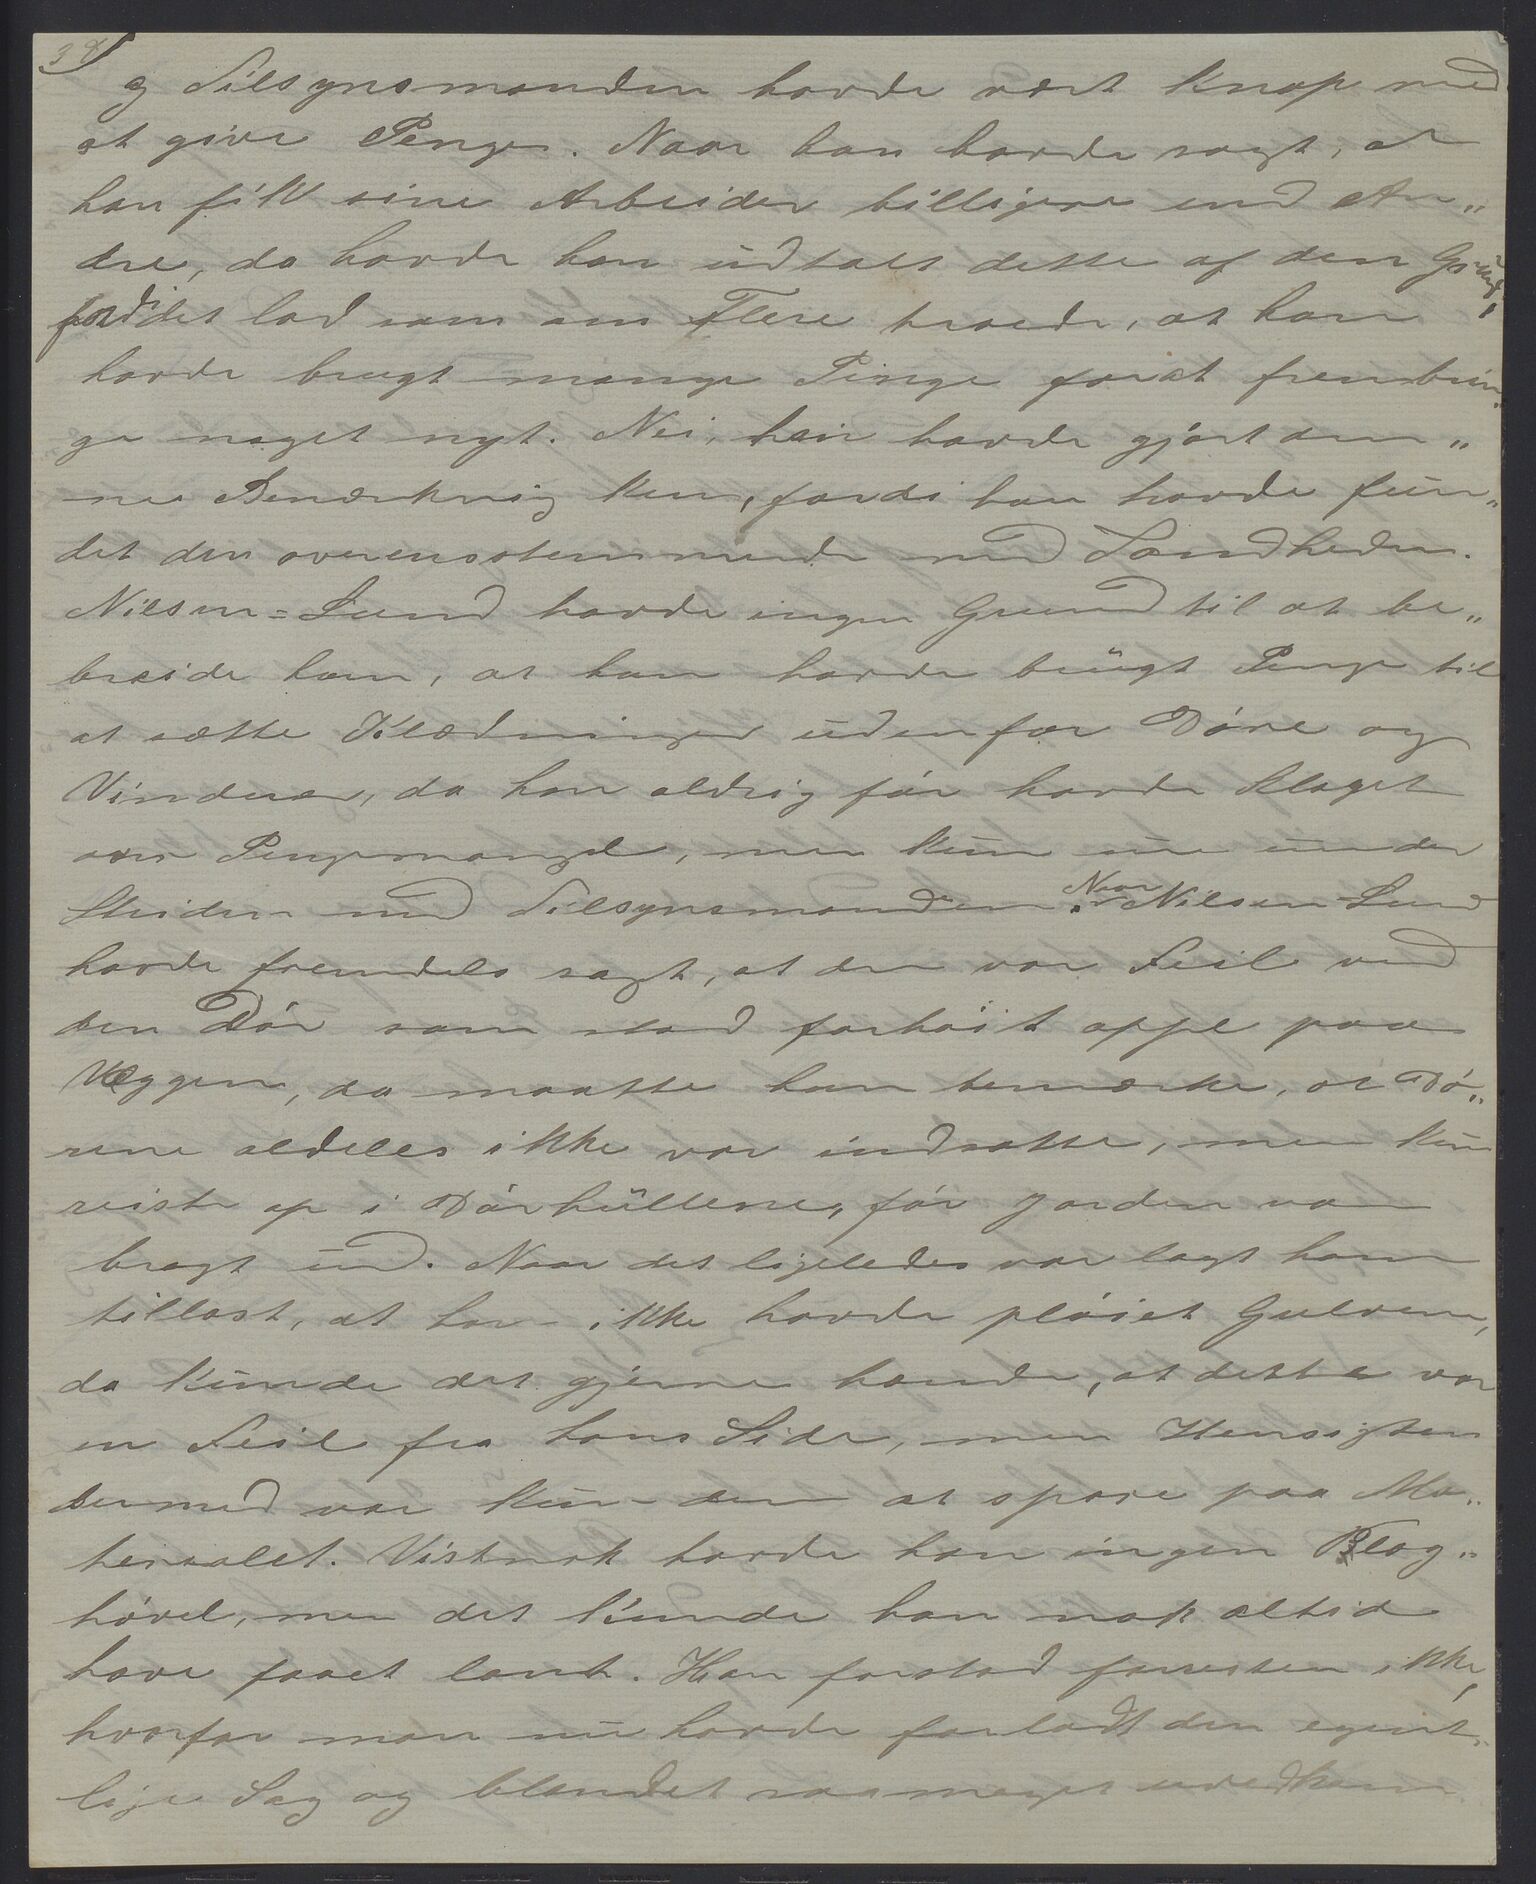 38
og Tilsynsmanden havde vært knap med
at give Penge. Naar han havde sagt, at
han fik sine Arbeider billigere end An„
dre, da havde han udtalt dette af den Grund,
fordi det lod som om Flere troede, at han
havde brugt mange Penge for at frembrin„
ge noget nyt. Nei, han havde gjort den„
ne Bemærkning kun, fordi han havde fun„
det den overensstemmende med Sandheden.
Nilsen=Lund havde ingen Grund til at be„
breide ham, at han havde brugt Penge til
at sætte Klædninger udenfor Döre og
Vinduer, da han aldrig för havde klaget
om Pengemangel, men kun nu under
Striden med Tilsynsmanden. Naar Nilsen-Lund
havde fremdeles sagt, at der var Feil ved
den Dör som stod forhöit oppe paa
Væggen, da maatte han bemærke, at Dö„
rene aldeles ikke var indsatte, men kun
reiste op i Dörhullerne, för Jorden var
bragt ud. Naar det ligeledes var lagt ham
tillast, at han ikke havde plöiet Gulvene,
da kunde det gjerne hænde, at dette var
en Feil fra hans Side, men Hensigten
dermed var kun den at spare paa Ma„
terialet. Vistnok havde han ingen Plog„
hövel, men det kunde han nok altid
have faaet laant. Han forstod forresten ikke,
hvorfor man nu havde forladt den egent„
lige Sag og blandet saa meget uvedkom